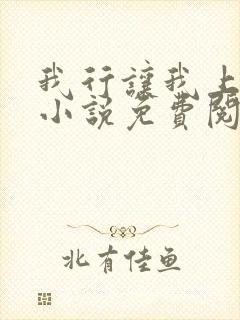 我行讓我上
小說免費閱
北有佳魚